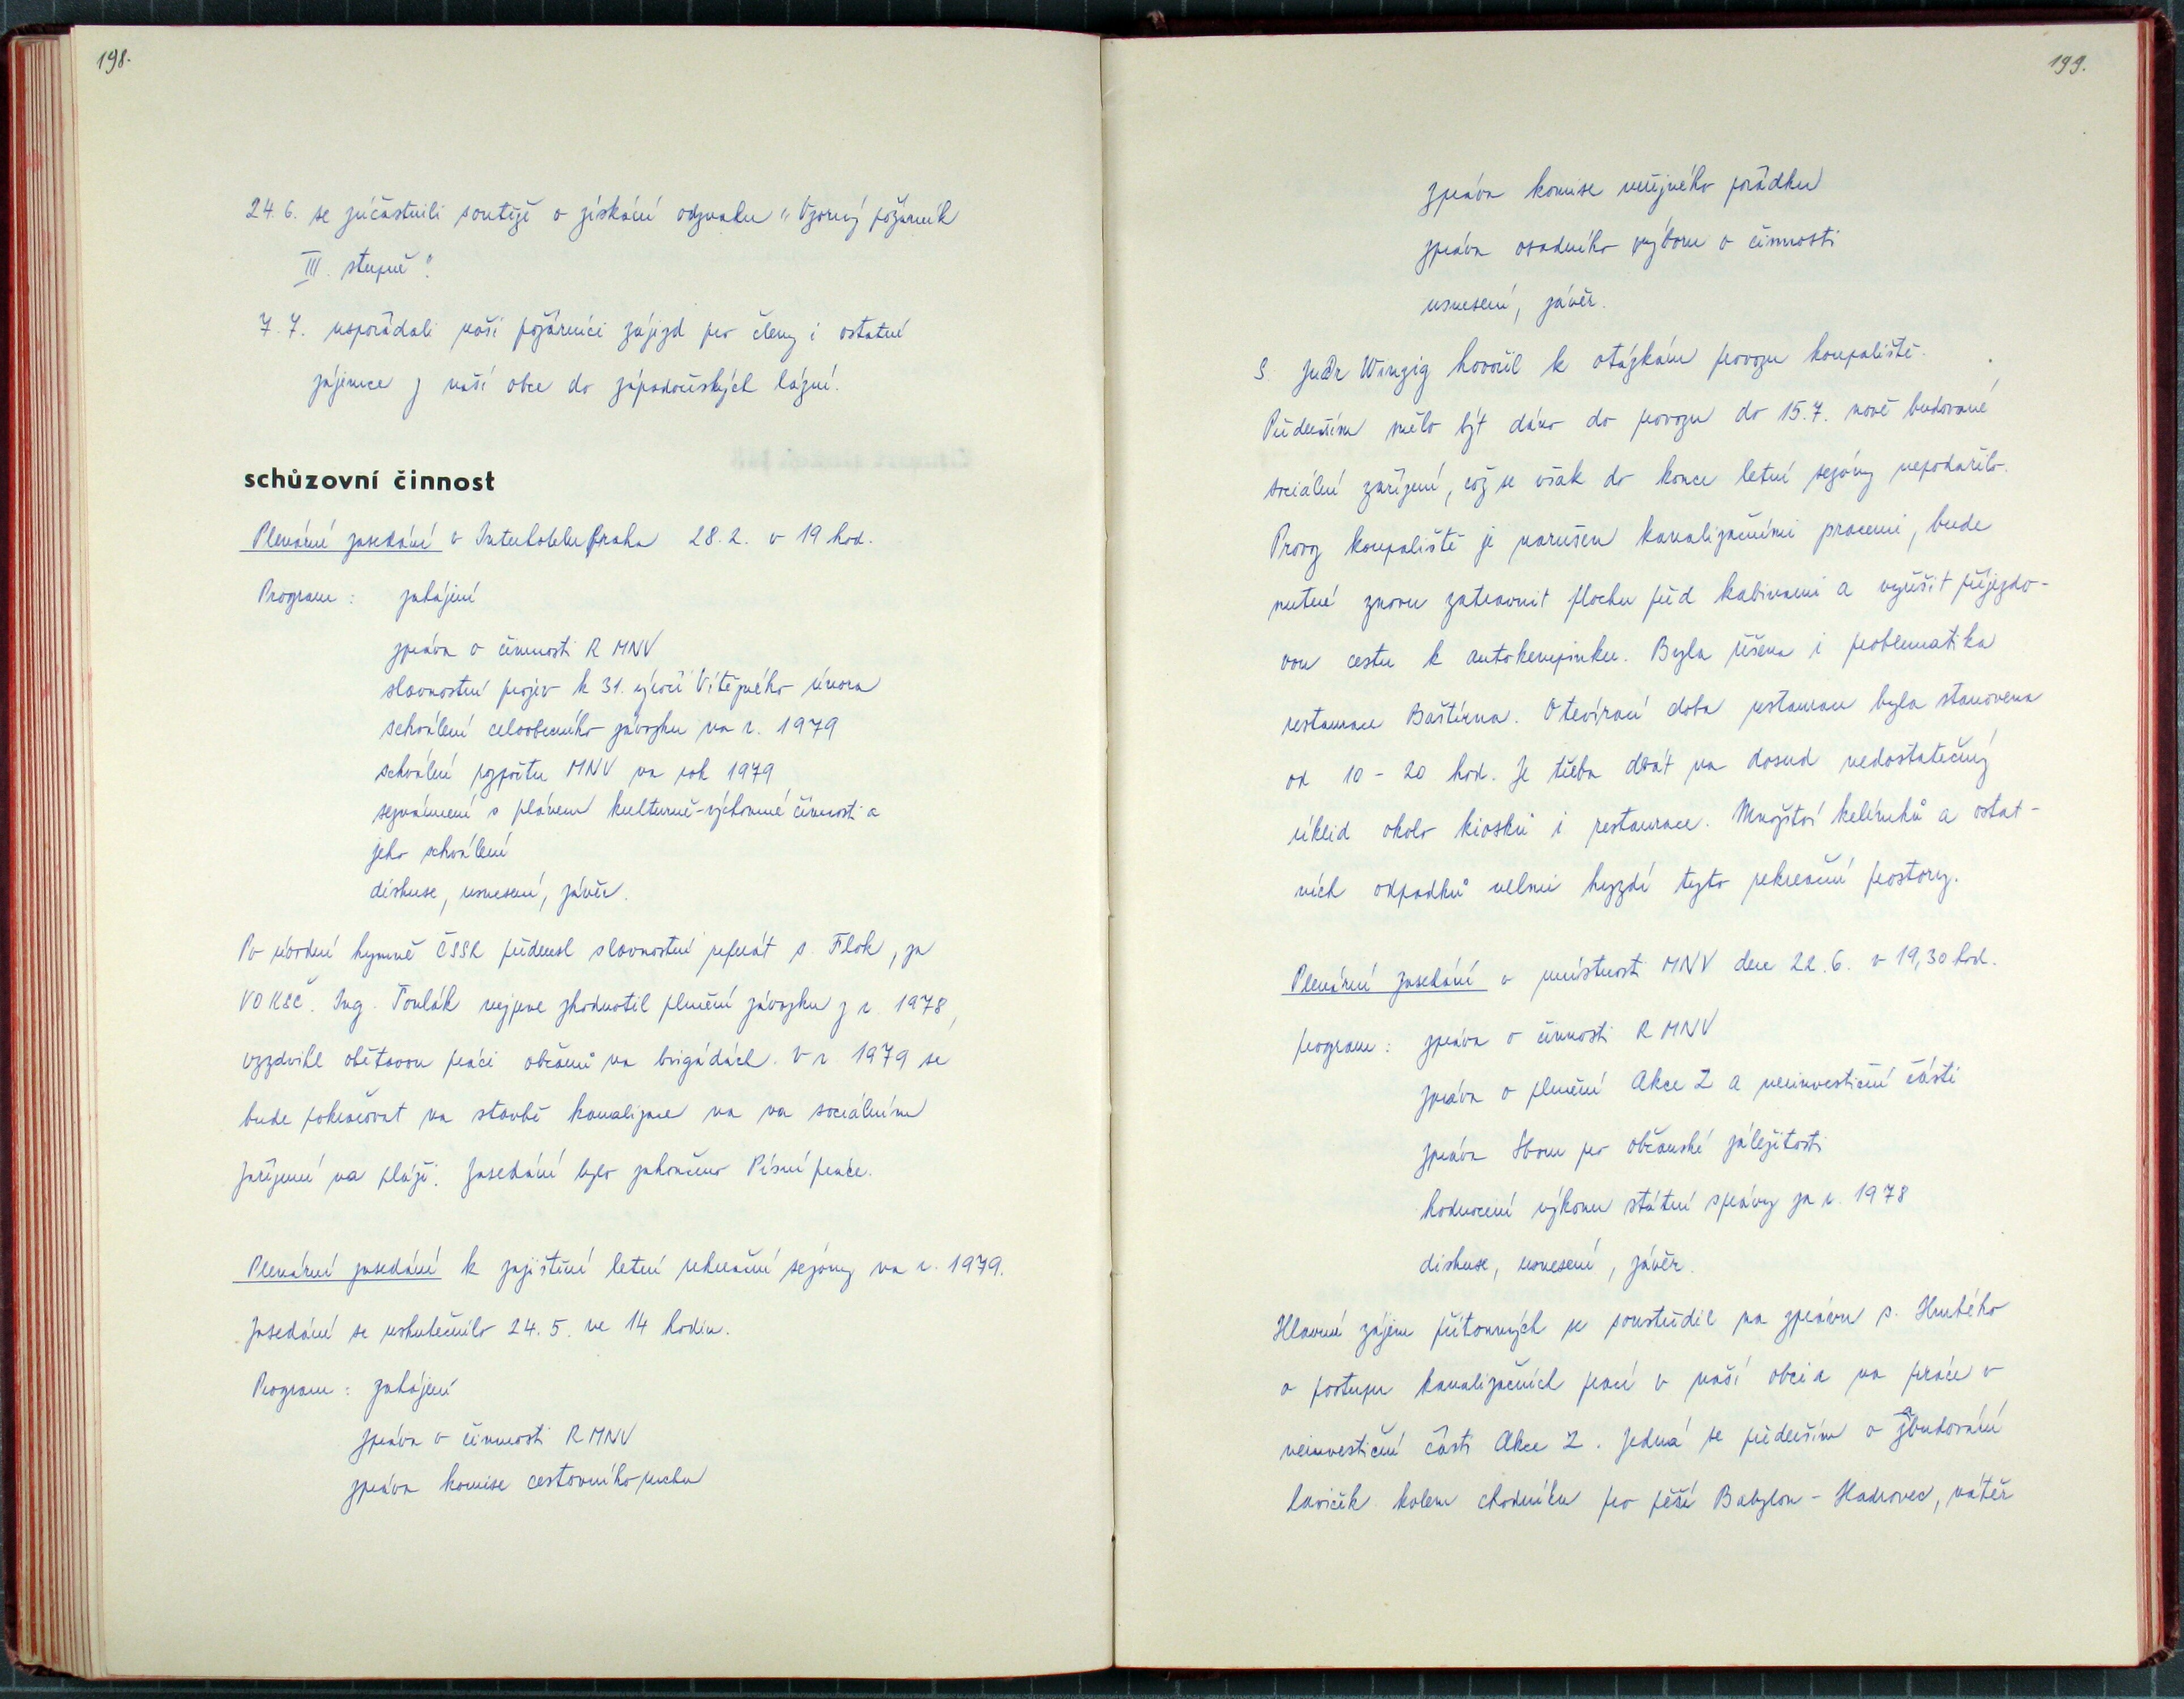 198.
24. 6. se zúčastnili soutěže o získání odznaku "Vzorný požárník
III. stupně".
7. 7. uspořádali naši požárníci zájezd pro členy i ostatní
zájemce z naší obce do západočeských lázní.
schůzovní činnost
Plenární zasedání v Interhotelu Praha 28. 2. v 19 hod.
Program: zahájení
zpráva o činnosti R MNV
slavnostní projev k 31. výročí Vítězného února
schválení celoobecního závazku na r. 1979
schválení rozpočtu MNV na rok 1979
seznámení s plánem kulturně-výchovné činnosti a
jeho schválení
diskuse, usnesení, závěr.
Po úvodní hymně ČSSR přednesl slavnostní referát s. Flok, za
VO KSČ. Ing. Toulák nejprve zhodnotil plnění závazku z r. 1978,
vyzdvihl obětavou práci občanů na brigádách. V r. 1979 se
bude pokračovat na stavbě kanalizace na na sociálním
zařízení na pláži. Zasedání bylo zakončeno Písní práce.
Plenární zasedání k zajištění letní rekreační sezóny na r. 1979.
Zasedání se uskutečnilo 24. 5. ve 14 hodin.
Program: zahájení
zpráva o činnosti R MNV
zpráva komise cestovního ruchu
199.
zpráva komise veřejného pořádku
zpráva osadního výboru o činnosti
usnesení, závěr.
S. JuDr Winzig hovořil k otázkám provozu koupaliště.
Především mělo být dáno do provozu do 15. 7. nově budované
sociální zařízení, což se však do konce letní sezóny nepodařilo.
Provoz koupaliště je narušen kanalizačními pracemi, bude
nutné znovu zatravnit plochu před kabinami a vyřešit příjezdo-
vou cestu k autokempinku. Byla řešena i problematika
restaurace Baštírna. Otevírací doba restaurace byla stanovena
od 10 - 20 hod. Je třeba dbát na dosud nedostatečný
úklid okolo kiosků i restaurace. Množství kelímků a ostat-
ních odpadků velmi hyzdí tyto rekreační prostory.
Plenární zasedání v místnosti MNV dne 22. 6. v 19,30 hod.
program: zpráva o činnosti R MNV
zpráva o plnění Akce Z a neinvestiční části
zpráva Sboru pro občanské záležitosti
hodnocení výkonu státní správy za r. 1978
diskuse, usnesení, závěr.
Hlavní zájem přítomných se soustředil na zprávu s. Hrubého
o postupu kanalizačních prací v naší obci a na práce v
neinvestiční části Akce Z. Jedná se především o zbudování
laviček kolem chodníku pro pěší Babylon - Hadrovec, nátěr